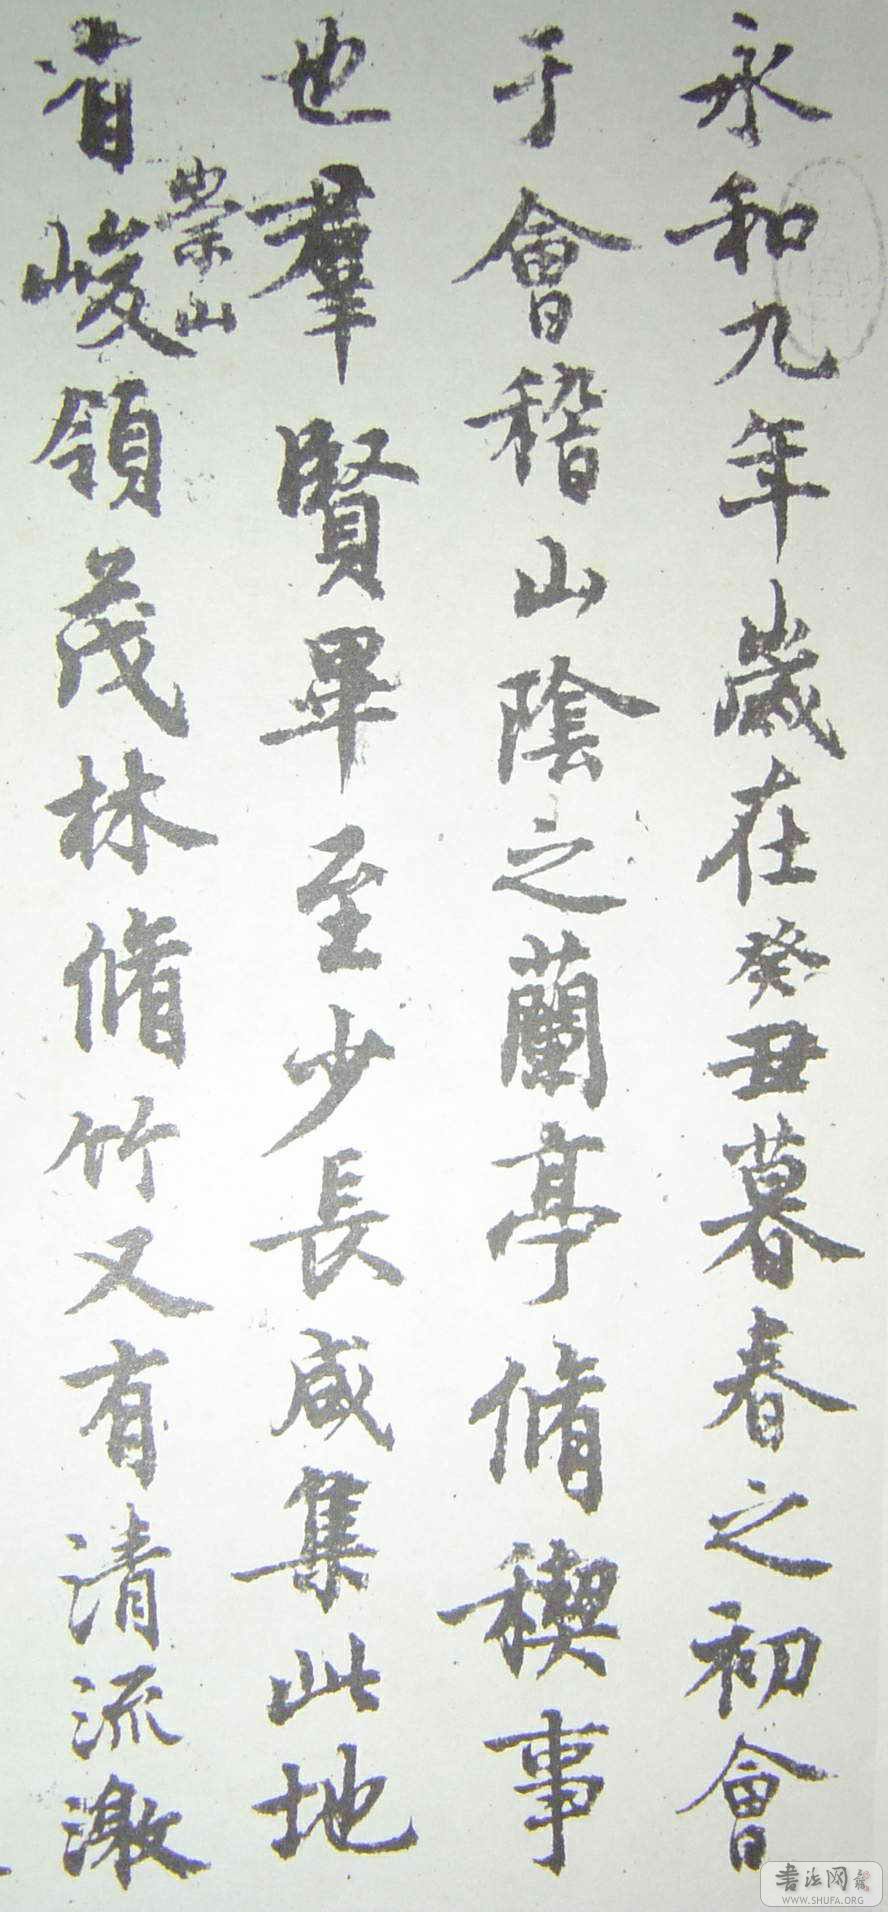 永和九年歲在癸丑暮春之初會
于會稽山陰之蘭亭脩稧事
也羣賢畢至少長咸集此地
有崇山峻領茂林脩竹又有清流激
書法网
WWW.SHUFA.ORG